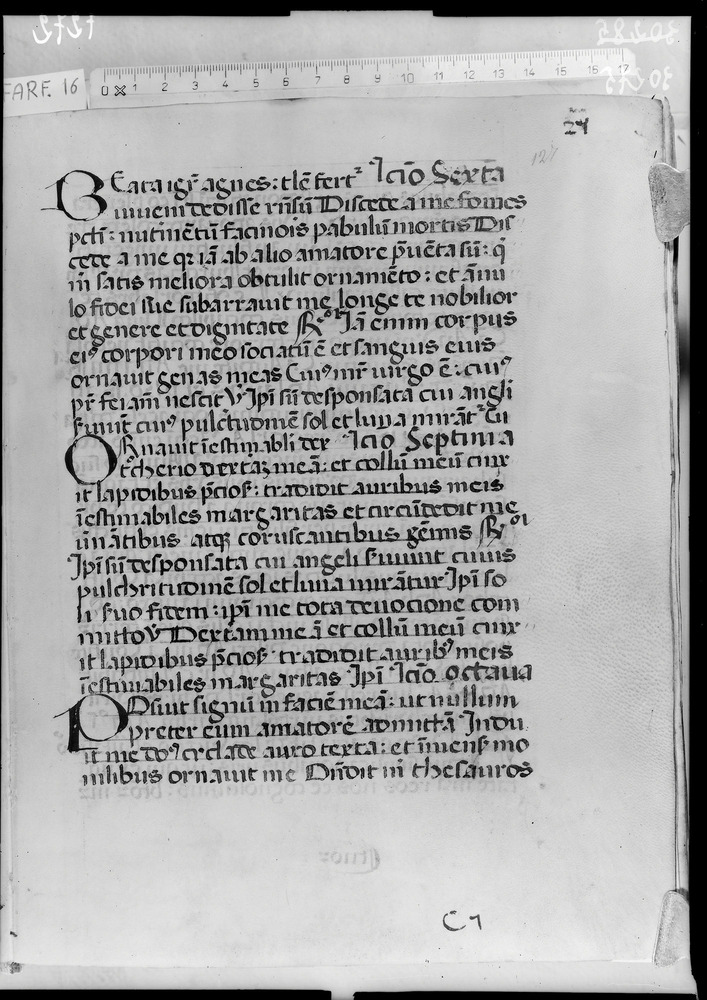 FARF. 16
0 1 2 3 4 5 6 7 8 9 10 11 12 13 14 15 16 17
24
127
BEata igr̄ agnes: tlē fert᷒ Lcīo Sexta
iuueni dedisse rn̄sū Discede a me fomes
pctī: nutimētū facinois pabulū mortis Dis
cede a me qꝛ iā ab alio amatore p̄uēta sū: q̇
m̄ satis meliora obtulit ornamēto: et ānu
lo fidei sue subarrauit me longe te nobilior
et genere et dignitate ℟ Iā enim corpus
eiꝰ corpori meo sociatū ē et sanguis eius
ornauit genas meas Cuiꝰ mr̄ uirgo ē: cuiꝰ
pr̄ femā nescit ℣ Ipī sū desponsata cui angli
seruiūt cuiꝰ pulcͭtudinē sol et luna mirāt᷒ Cū
ORnauit īestimabli dex Lcīo Septima
tͣcherio dextaꝫ meā: et collū meū cinx
it lapidibus p̄ciosꝭ: tradidit auribus meis
īestimabiles margaritas et circūdedit me
ūnātibus atqꝫ coruscantibus gēmis ℟
Ipī sū desponsata cui angeli seruiunt cuius
pulchritudinē sol et luna mirātur Ipī so
li seruo fidem: ipī me tota deuocione com
mitto ℣ Dextam meā et collū meū cinx
it lapidibus p̄ciosꝭ tradidit auribꝰ meis
īestimabiles margaritas Ipī Lcīo octaua
POsuit signū in faciē meā: ut nullum
preter eum amatorē admittā Indu
it me dōꝰ cyclade auro texta: et īmensꝭ mo
nilibus ornauit me Din̄dit m̄ thesauros
C 1